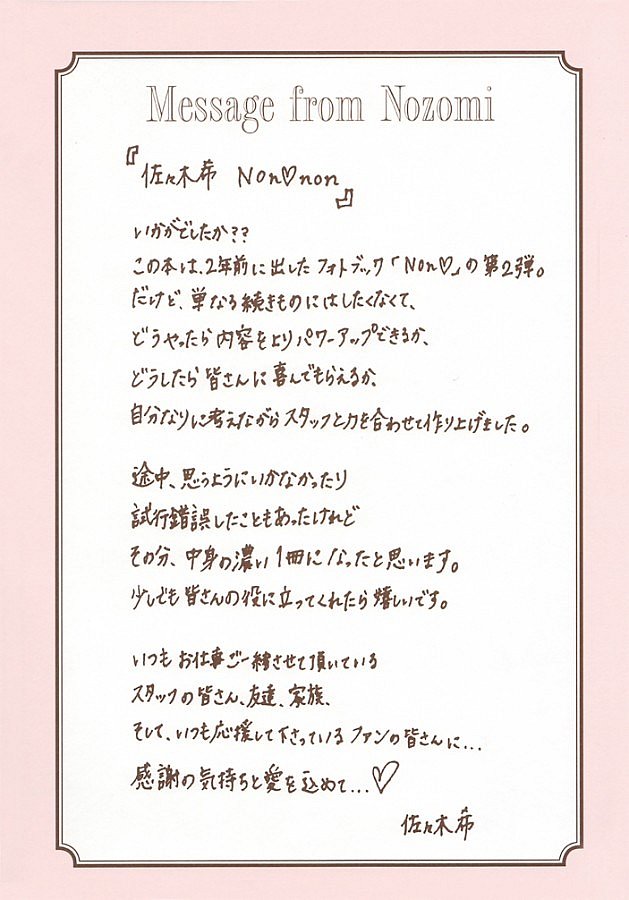 Message from Nozomi
『佐々木希 Non♡non』
いかがでしたか??
この本は、2年前に出したフォトブック「Non♡」の第2弾。
だけど、単なる続きものにはしたくなくて、
どうやったら内容をよりパワーアップできるか、
どうしたら皆さんに喜んでもらえるか、
自分なりに考えながらスタッフと力を合わせて作り上げました。
途中、思うようにいかなかったり
試行錯誤したこともあったけれど
その分、中身の濃い1冊になったと思います。
少しでも皆さんの役に立ってくれたら嬉しいです。
いつもお仕事ご一緒させて頂いている
スタッフの皆さん、友達、家族、
そして、いつも応援して下さっているファンの皆さんに...
感謝の気持ちと愛を込めて...♡
佐々木希